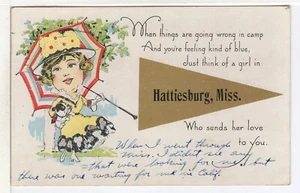 When things are going wrong in camp
And you're feeling kind of blue,
Just think of a girl in
Hattiesburg, Miss.
Who sends her love
to you.
When I went through
Miss. I didn't see any
that were looking for me, but
there was one waiting for me in Calif.